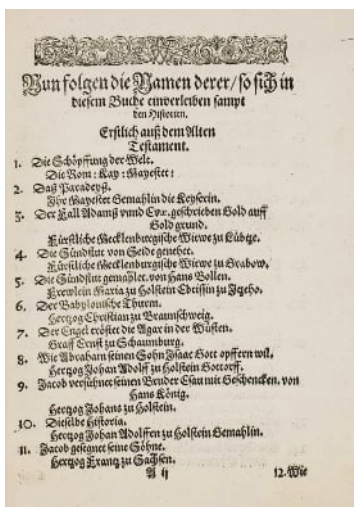 Nun folgen die Namen derer/ so sich in
diesem Buche einverleiben sampt
den Historien.
Erstlich auß dem Alten
Testament.
1. Die Schöpffung der Welt.
Die Röm: Kay: Mayestet:
2. Daß Paradeyß.
Ihre Mayestet Gemahlin die Keyserin.
3. Der Fall Adamß vnnd Evæ, geschrieben Gold auff
Gold grund.
Fürstliche Mecklenburgische Witwe zu Lübtze.
4. Die Sündflut von Seide genehet.
Fürstliche Mecklenburgische Witwe zu Grabow.
5. Die Sündflut gemahlet, von Hans Bollen.
Frewlein Maria zu Holstein Ebtissin zu Itzeho.
6. Der Babylonische Thurem.
Hertzog Christian zu Braunschweig.
7. Der Engel tröstet die Agar in der Wüsten.
Graff Ernst zu Schaumburg.
8. Wie Abraham seinen Sohn Isaac Gott opffern wil.
Hertzog Johan Adolff zu Holstein Gottorff.
9. Jacob versühnet seinen Bruder Esau mit Geschencken. von
Hans König.
Hertzog Johans zu Holstein.
10. Dieselbe Historia.
Hertzog Johan Adolffen zu Holstein Gemahlin.
11. Jacob gesegnet seine Söhne.
Hertzog Frantz zu Sachsen.
A ij 12. Wie